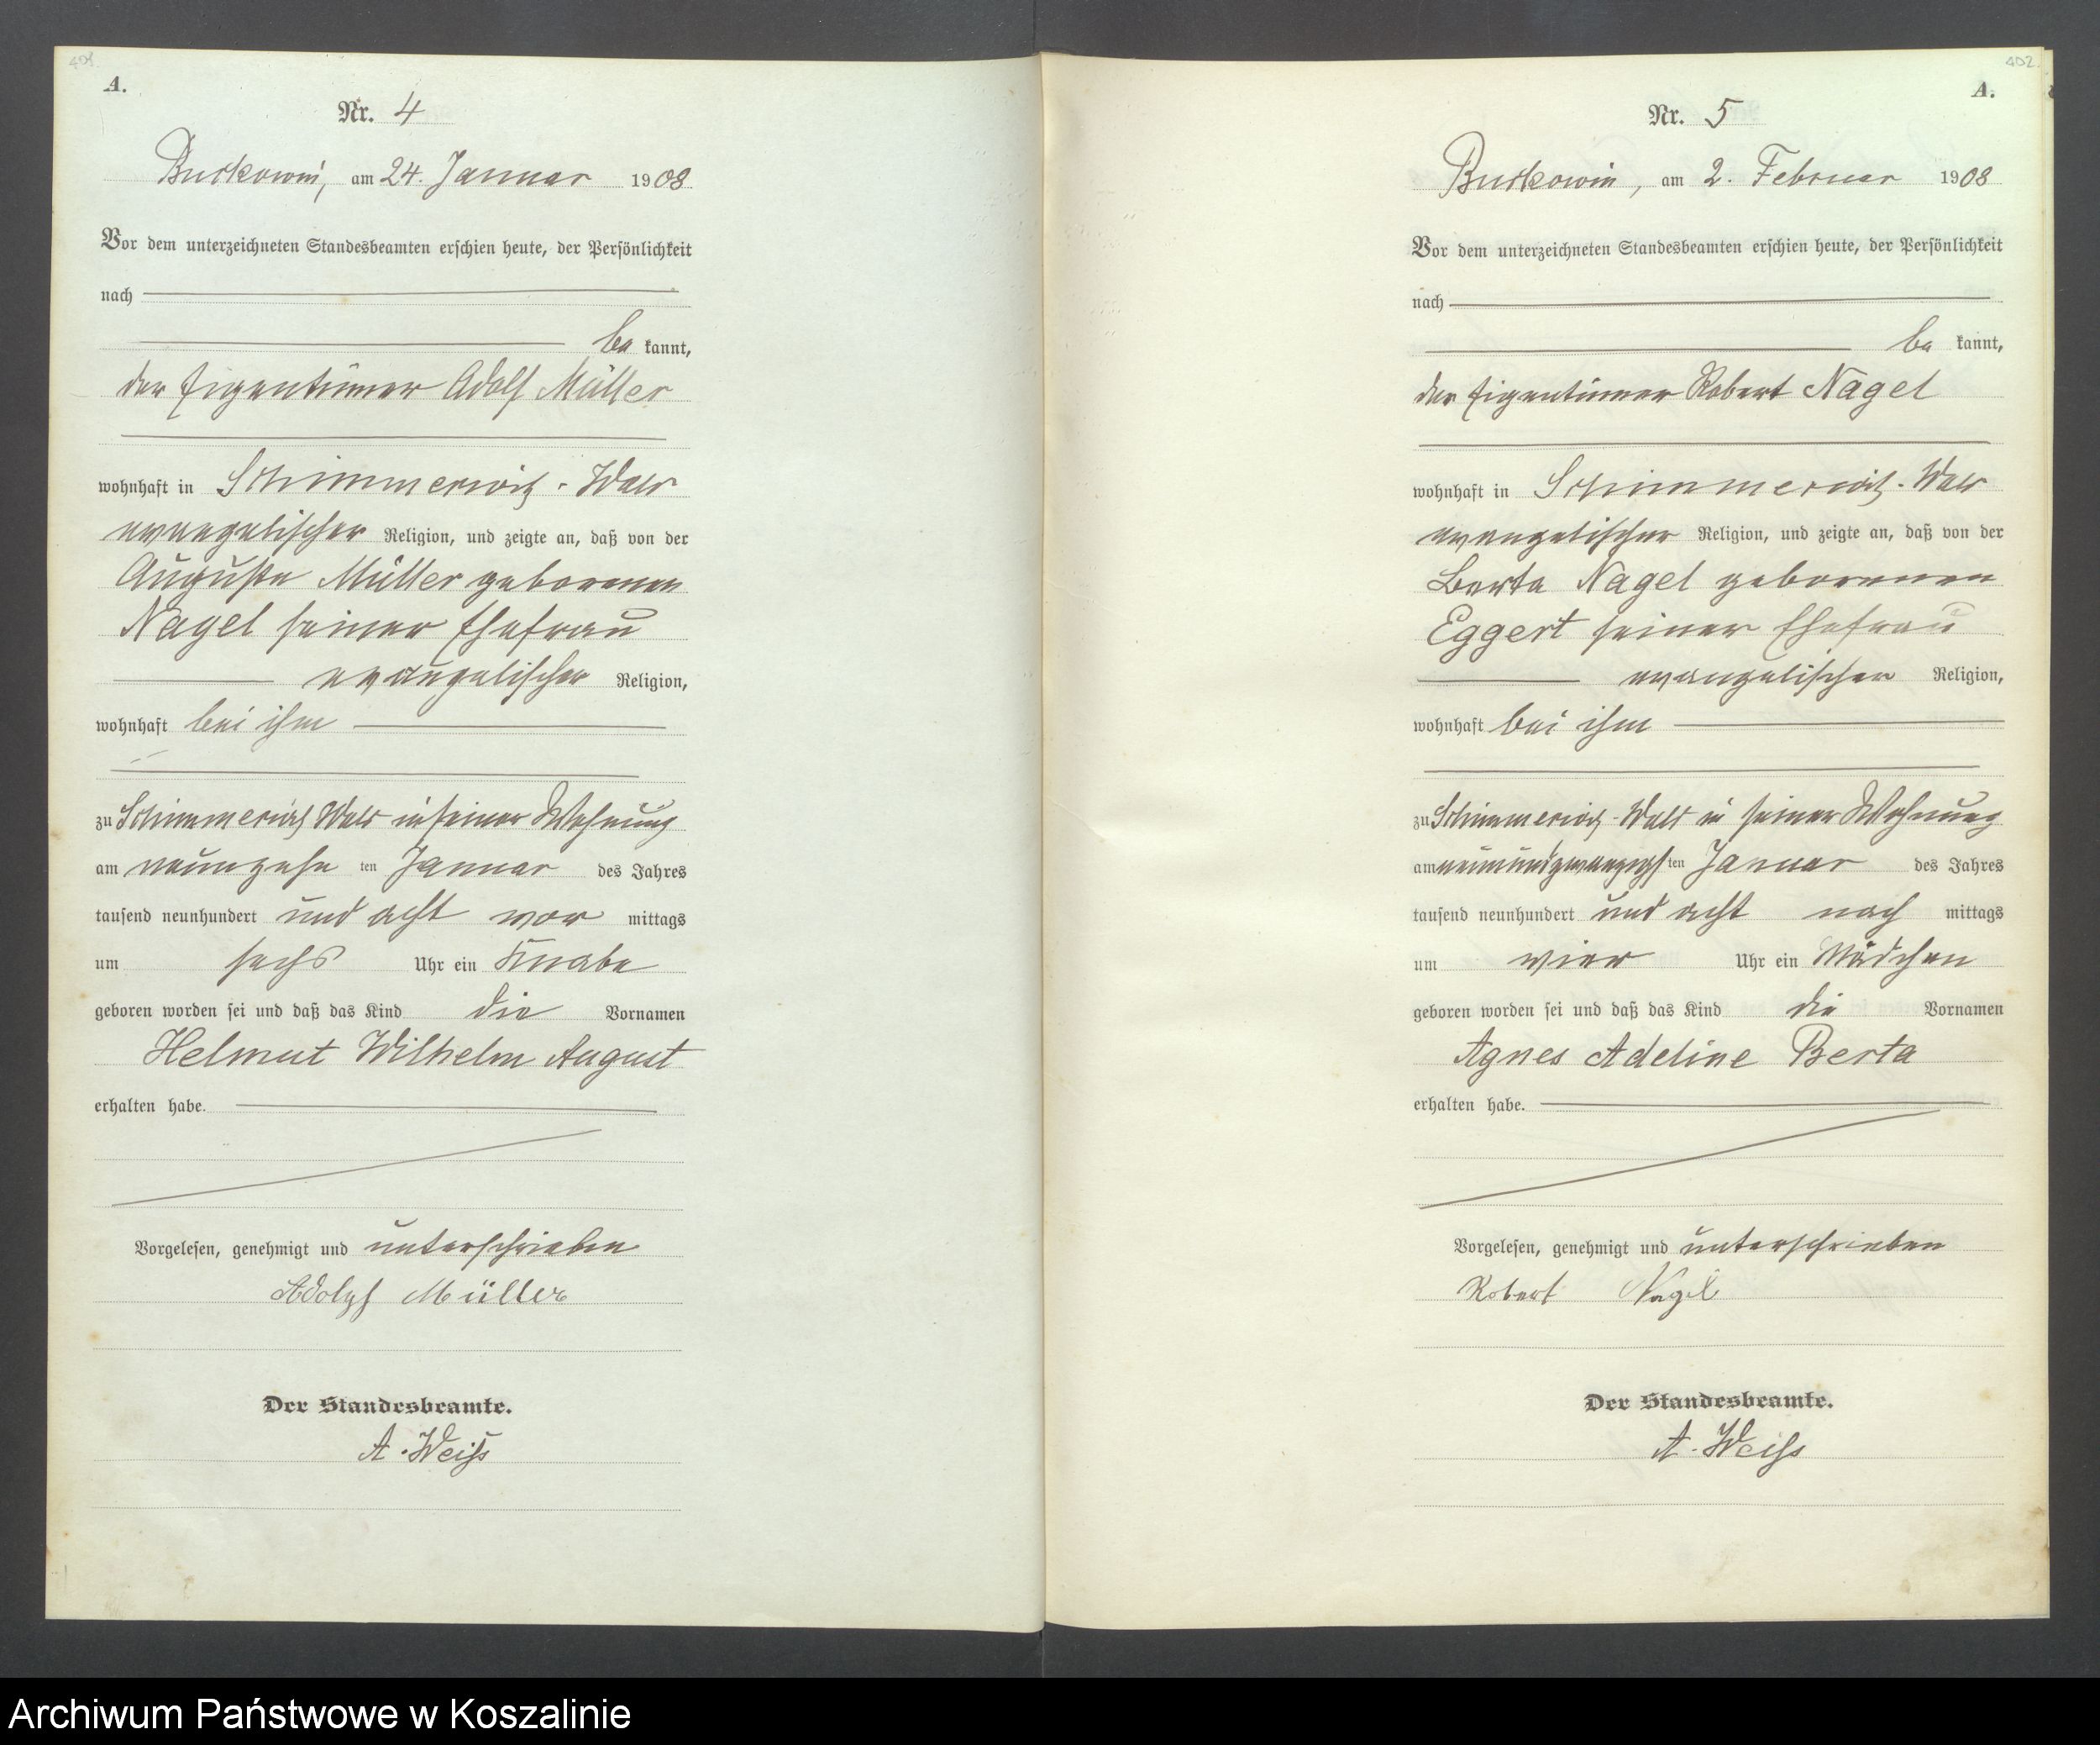 401.
A.
Nr. 4
Buckowin, am 24. Januar 1908
Vor dem unterzeichneten Standesbeamten erschien heute, der Persönlichkeit
nach
be kannt,
der Eigentümer Adolf Müller
wohnhaft in Schimmerwitz-Wald
evangelischer Religion, und zeigte an, daß von der
Auguste Müller geborenen
Nagel seiner Ehefrau
evangelischer Religion,
wohnhaft bei ihm
zu Schimmerwitz Wald in seiner Wohnung
am neunzehn ten Januar des Jahres
tausend neunhundert und acht vor mittags
um sechs Uhr ein Knabe
geboren worden sei und daß das Kind die Vornamen
Helmut Wilhelm August
erhalten habe.
Vorgelesen, genehmigt und unterschrieben
Adolph Müller
Der Standesbeamte.
A. Weiß
402.
A.
Nr. 5
Buckowin, am 2. Februar 1908
Vor dem unterzeichneten Standesbeamten erschien heute, der Persönlichkeit
nach
be kannt,
der Eigentümer Robert Nagel
wohnhaft in Schimmerwitz-Wald
evangelischer Religion, und zeigte an, daß von der
Berta Nagel geborenen
Eggert seiner Ehefrau
evangelischer Religion,
wohnhaft bei ihm
zu Schimmerwitz-Wald in seiner Wohnung
am neunundzwanzigsten Januar des Jahres
tausend neunhundert und acht nach mittags
um vier Uhr ein Mädchen
geboren worden sei und daß das Kind die Vornamen
Agnes Adeline Berta
erhalten habe.
Vorgelesen, genehmigt und unterschrieben
Robert Nagel
Der Standesbeamte.
A. Weiß
Archiwum Państwowe w Koszalinie